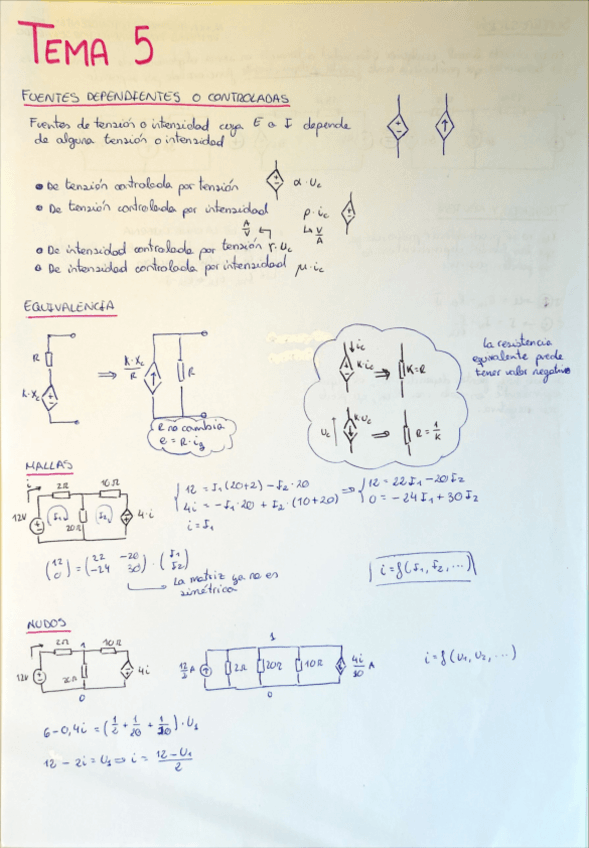 TEMA 5
FUENTES DEPENDIENTES O CONTROLADAS
Fuentes de tensión o intensidad cuya E o I depende
de alguna tensión o intensidad
• De tensión controlada por tensión α·Uc
• De tensión controlada por intensidad ρ·ic
A/V V/A
• De intensidad controlada por tensión γ·Uc
• De intensidad controlada por intensidad μ·ic
EQUIVALENCIA
R
K·Xc
⇒
K·Xc/R
R
R no cambia
e = R·ig
ic
K·ic ⇒ K=R
Uc
K·Uc ⇒ R = 1/K
La resistencia
equivalente puede
tener valor negativo
MALLAS
i 2Ω 10Ω
12V I1 20Ω I2 4·i
12 = I1(20+2) - I2·20
4i = -I1·20 + I2·(10+20)
i = I1
⇒ 12 = 22I1 - 20I2
0 = -24I1 + 30I2
(12 0) = (22 -20 -24 30)·(I1 I2)
La matriz ya no es
simétrica
i = f(I1, I2, ...)
NUDOS
2Ω 1 10Ω
12V 20Ω 4i
0
1
12/2 A 2Ω 20Ω 10Ω 4i/10 A
0
i = f(U1, U2, ...)
6 - 0,4i = (1/2 + 1/20 + 1/10)·U1
12 - 2i = U1 ⇒ i = 12-U1/2